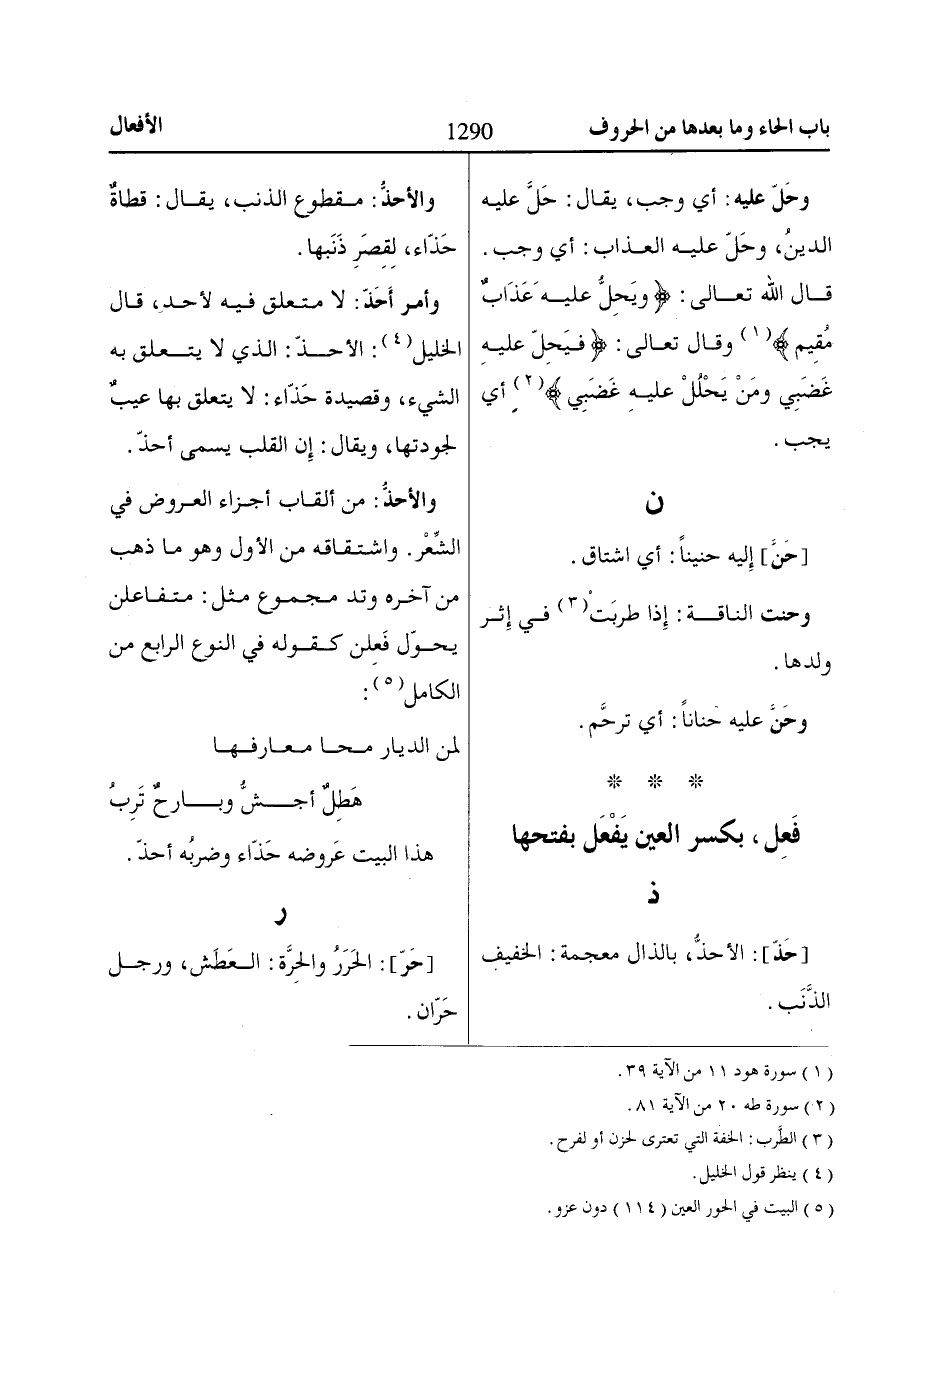 باب الحاء وما بعدها من الحروف
1290
الأفعال
وحَلّ عليه: أي وجب، يقال: حَلَّ عليه
الدينُ، وحَلّ عليه العذاب: أي وجب.
قال الله تعالى: ﴿ويَحِلُّ عليه عَذَابٌ
مُقِيم﴾(١) وقال تعالى: ﴿فيَحِلّ عليه
غَضَبِي ومَنْ يَحْلُلْ عليه غَضَبِي﴾(٢) أي
يجب.
ن
[حَنَّ] إليه حنيناً: أي اشتاق.
وحنت الناقة: إذا طربَتْ(٣) في إثر
ولدها.
وحَنَّ عليه حَناناً: أي ترحَّم.
* * *
فَعِل، بكسر العين يَفْعَل بفتحها
ذ
[حَذّ]: الأحذُّ، بالذال معجمة: الخفيف
الذَّنَب.
والأحذُّ: مقطوع الذنب، يقال: قطاةٌ
حَذّاء، لقِصَرِ ذَنَبِها.
وأمر أَحَذّ: لا متعلق فيه لأحد، قال
الخليل(٤): الأحذّ: الذي لا يتعلق به
الشيء، وقصيدة حَذّاء: لا يتعلق بها عيبٌ
لجودتها، ويقال: إن القلب يسمى أحذّ.
والأحذُّ: من ألقاب أجزاء العروض في
الشِّعْر. واشتقاقه من الأول وهو ما ذهب
من آخره وتد مجموع مثل: متفاعلن
يحوّل فَعِلن كقوله في النوع الرابع من
الكامل(٥):
لمن الديار محا معارفها
هَطِلٌ أجشُّ وبارحٌ تَرِبُ
هذا البيت عَروضه حَذّاء وضربُه أحذّ.
ر
[حَرّ]: الحَرَرُ والحِرَّة: العَطَش، ورجل
حَرّان.
(١) سورة هود ١١ من الآية ٣٩.
(٢) سورة طه ٢٠ من الآية ٨١.
(٣) الطَّرب: الخفة التي تعترى لحزن أو لفرح.
(٤) ينظر قول الخليل.
(٥) البيت في الحور العين (١١٤) دون عزو.